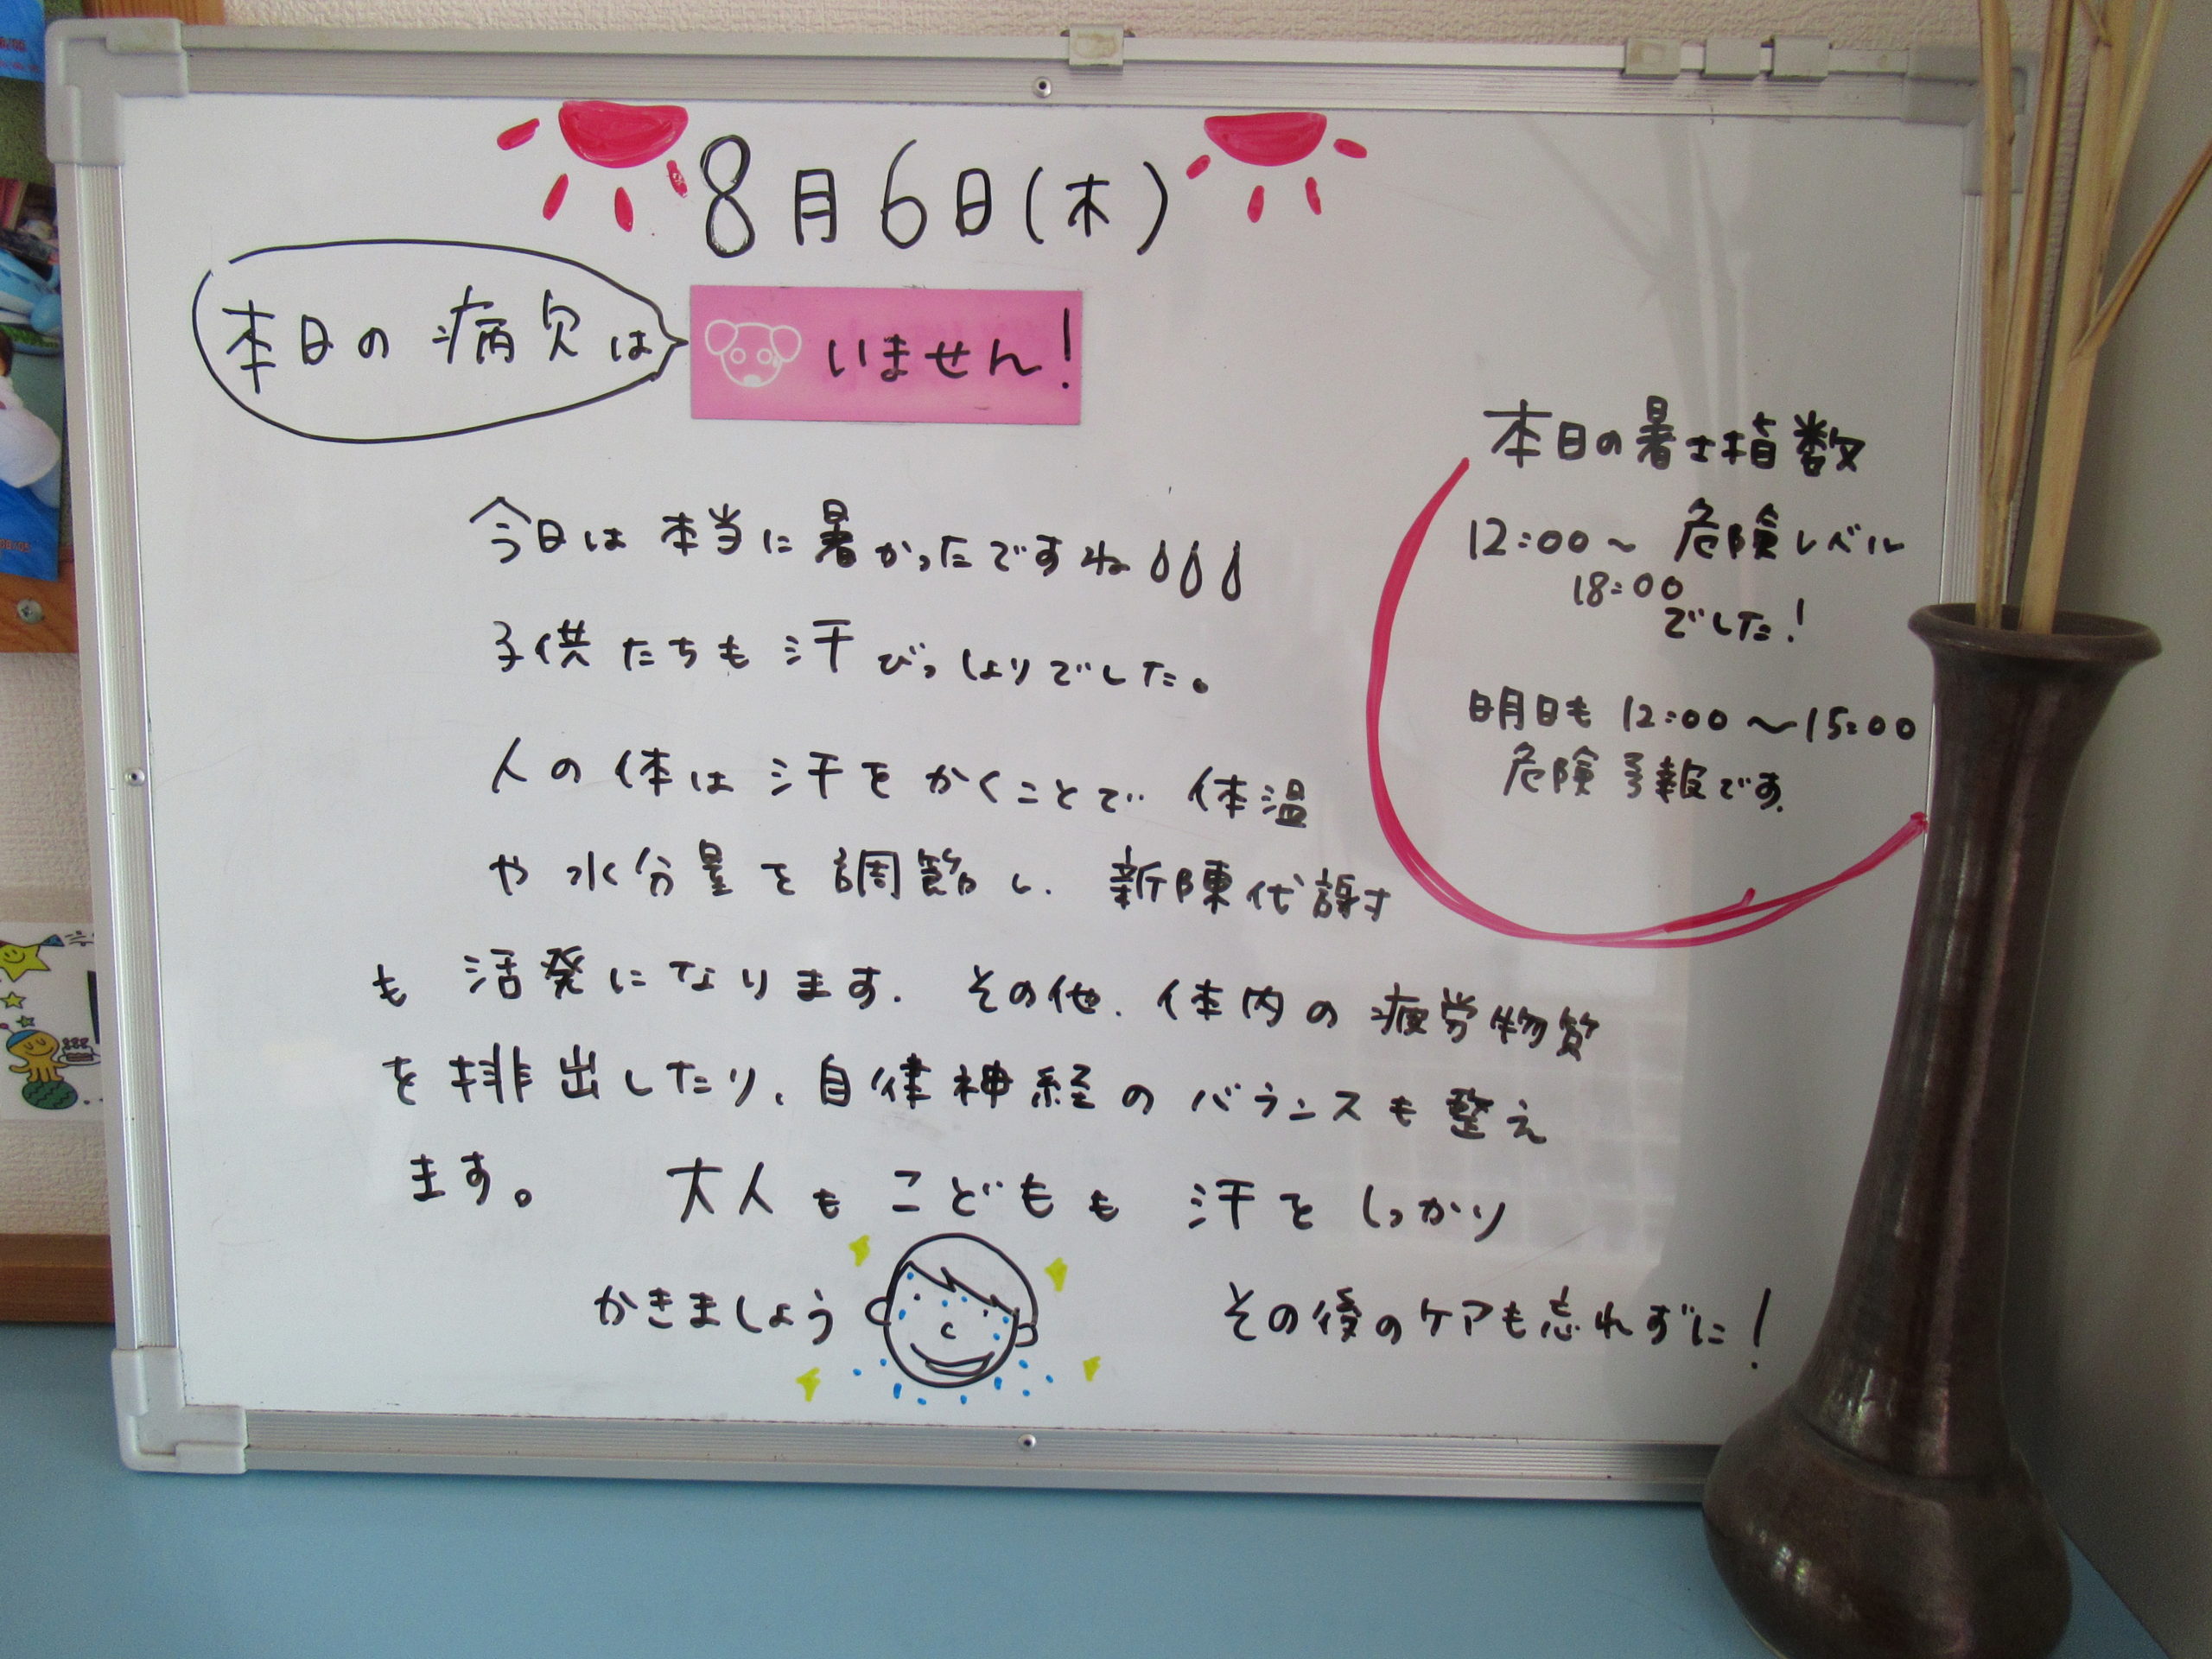 8月6日(木)
本日の病欠は
いません!
今日は本当に暑かったですね
子供たちも汗びっしょりでした。
人の体は汗をかくことで体温
や水分量を調節し、新陳代謝
も活発になります。その他、体内の疲労物質
を排出したり、自律神経のバランスも整え
ます。 大人もこどもも汗をしっかり
かきましょう その後のケアも忘れずに!
本日の暑さ指数
12:00~ 危険レベル
18:00
でした!
明日も 12:00~15:00
危険予報です。